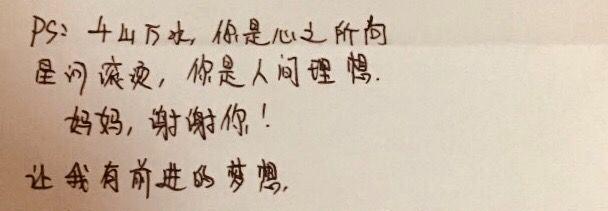 PS: 千山万水, 你是心之所向
星河滚烫, 你是人间理想.
妈妈, 谢谢你!
让我有前进的梦想.